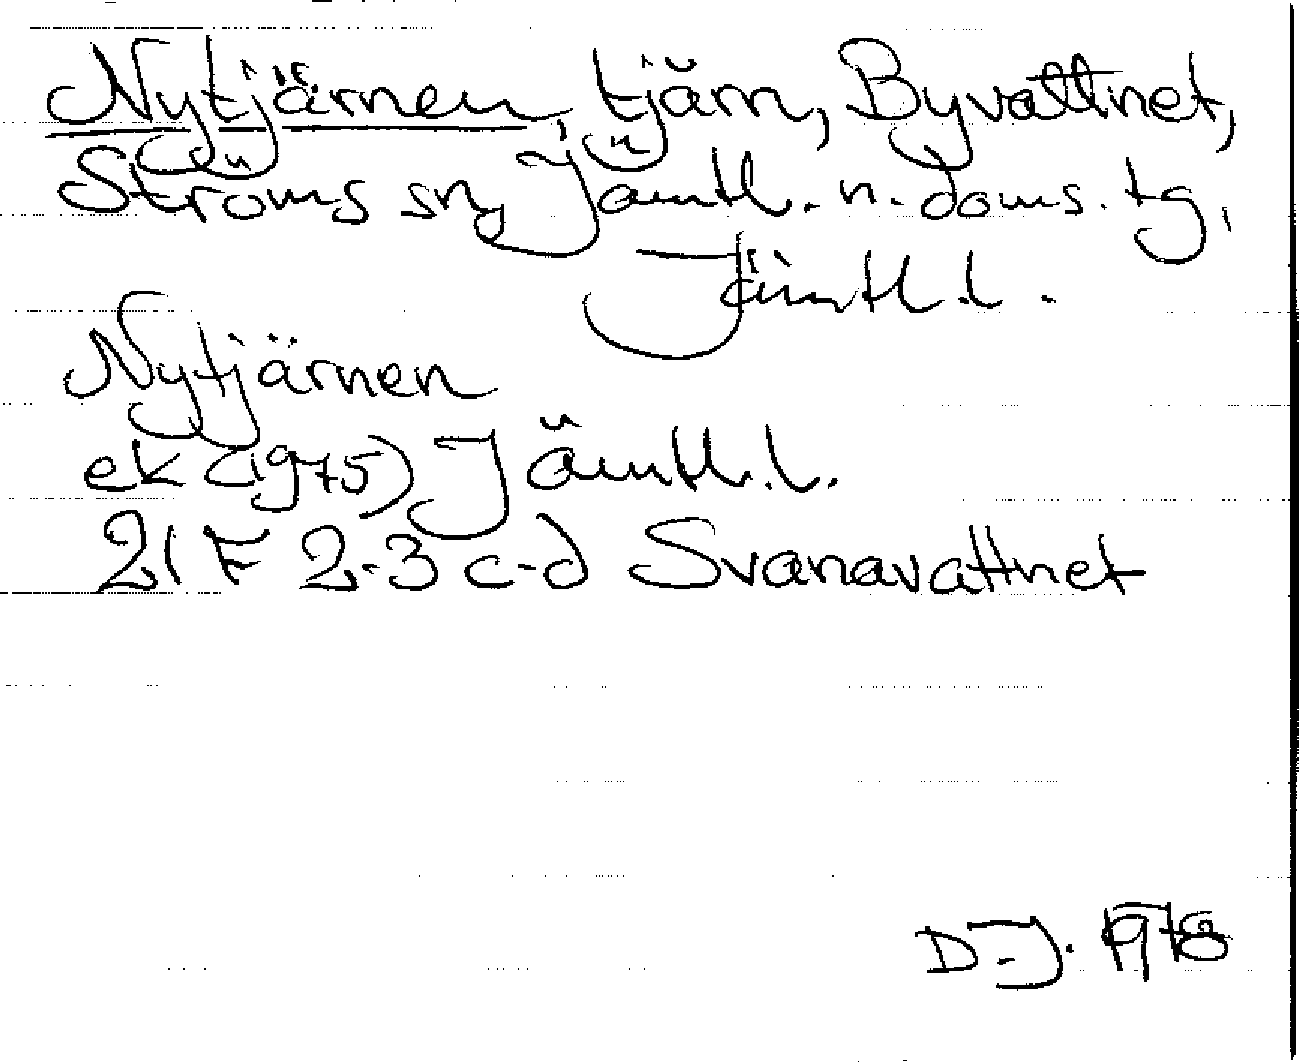 Nytjärnen, tjärn, Byvattnet,
Ströms sn, Jämtl. n. doms. tg,
Jämtl. l.
Nytjärnen
ek (1975) Jämtl. l.
21 F 2-3 c-d Svanavattnet
D-J. 1978